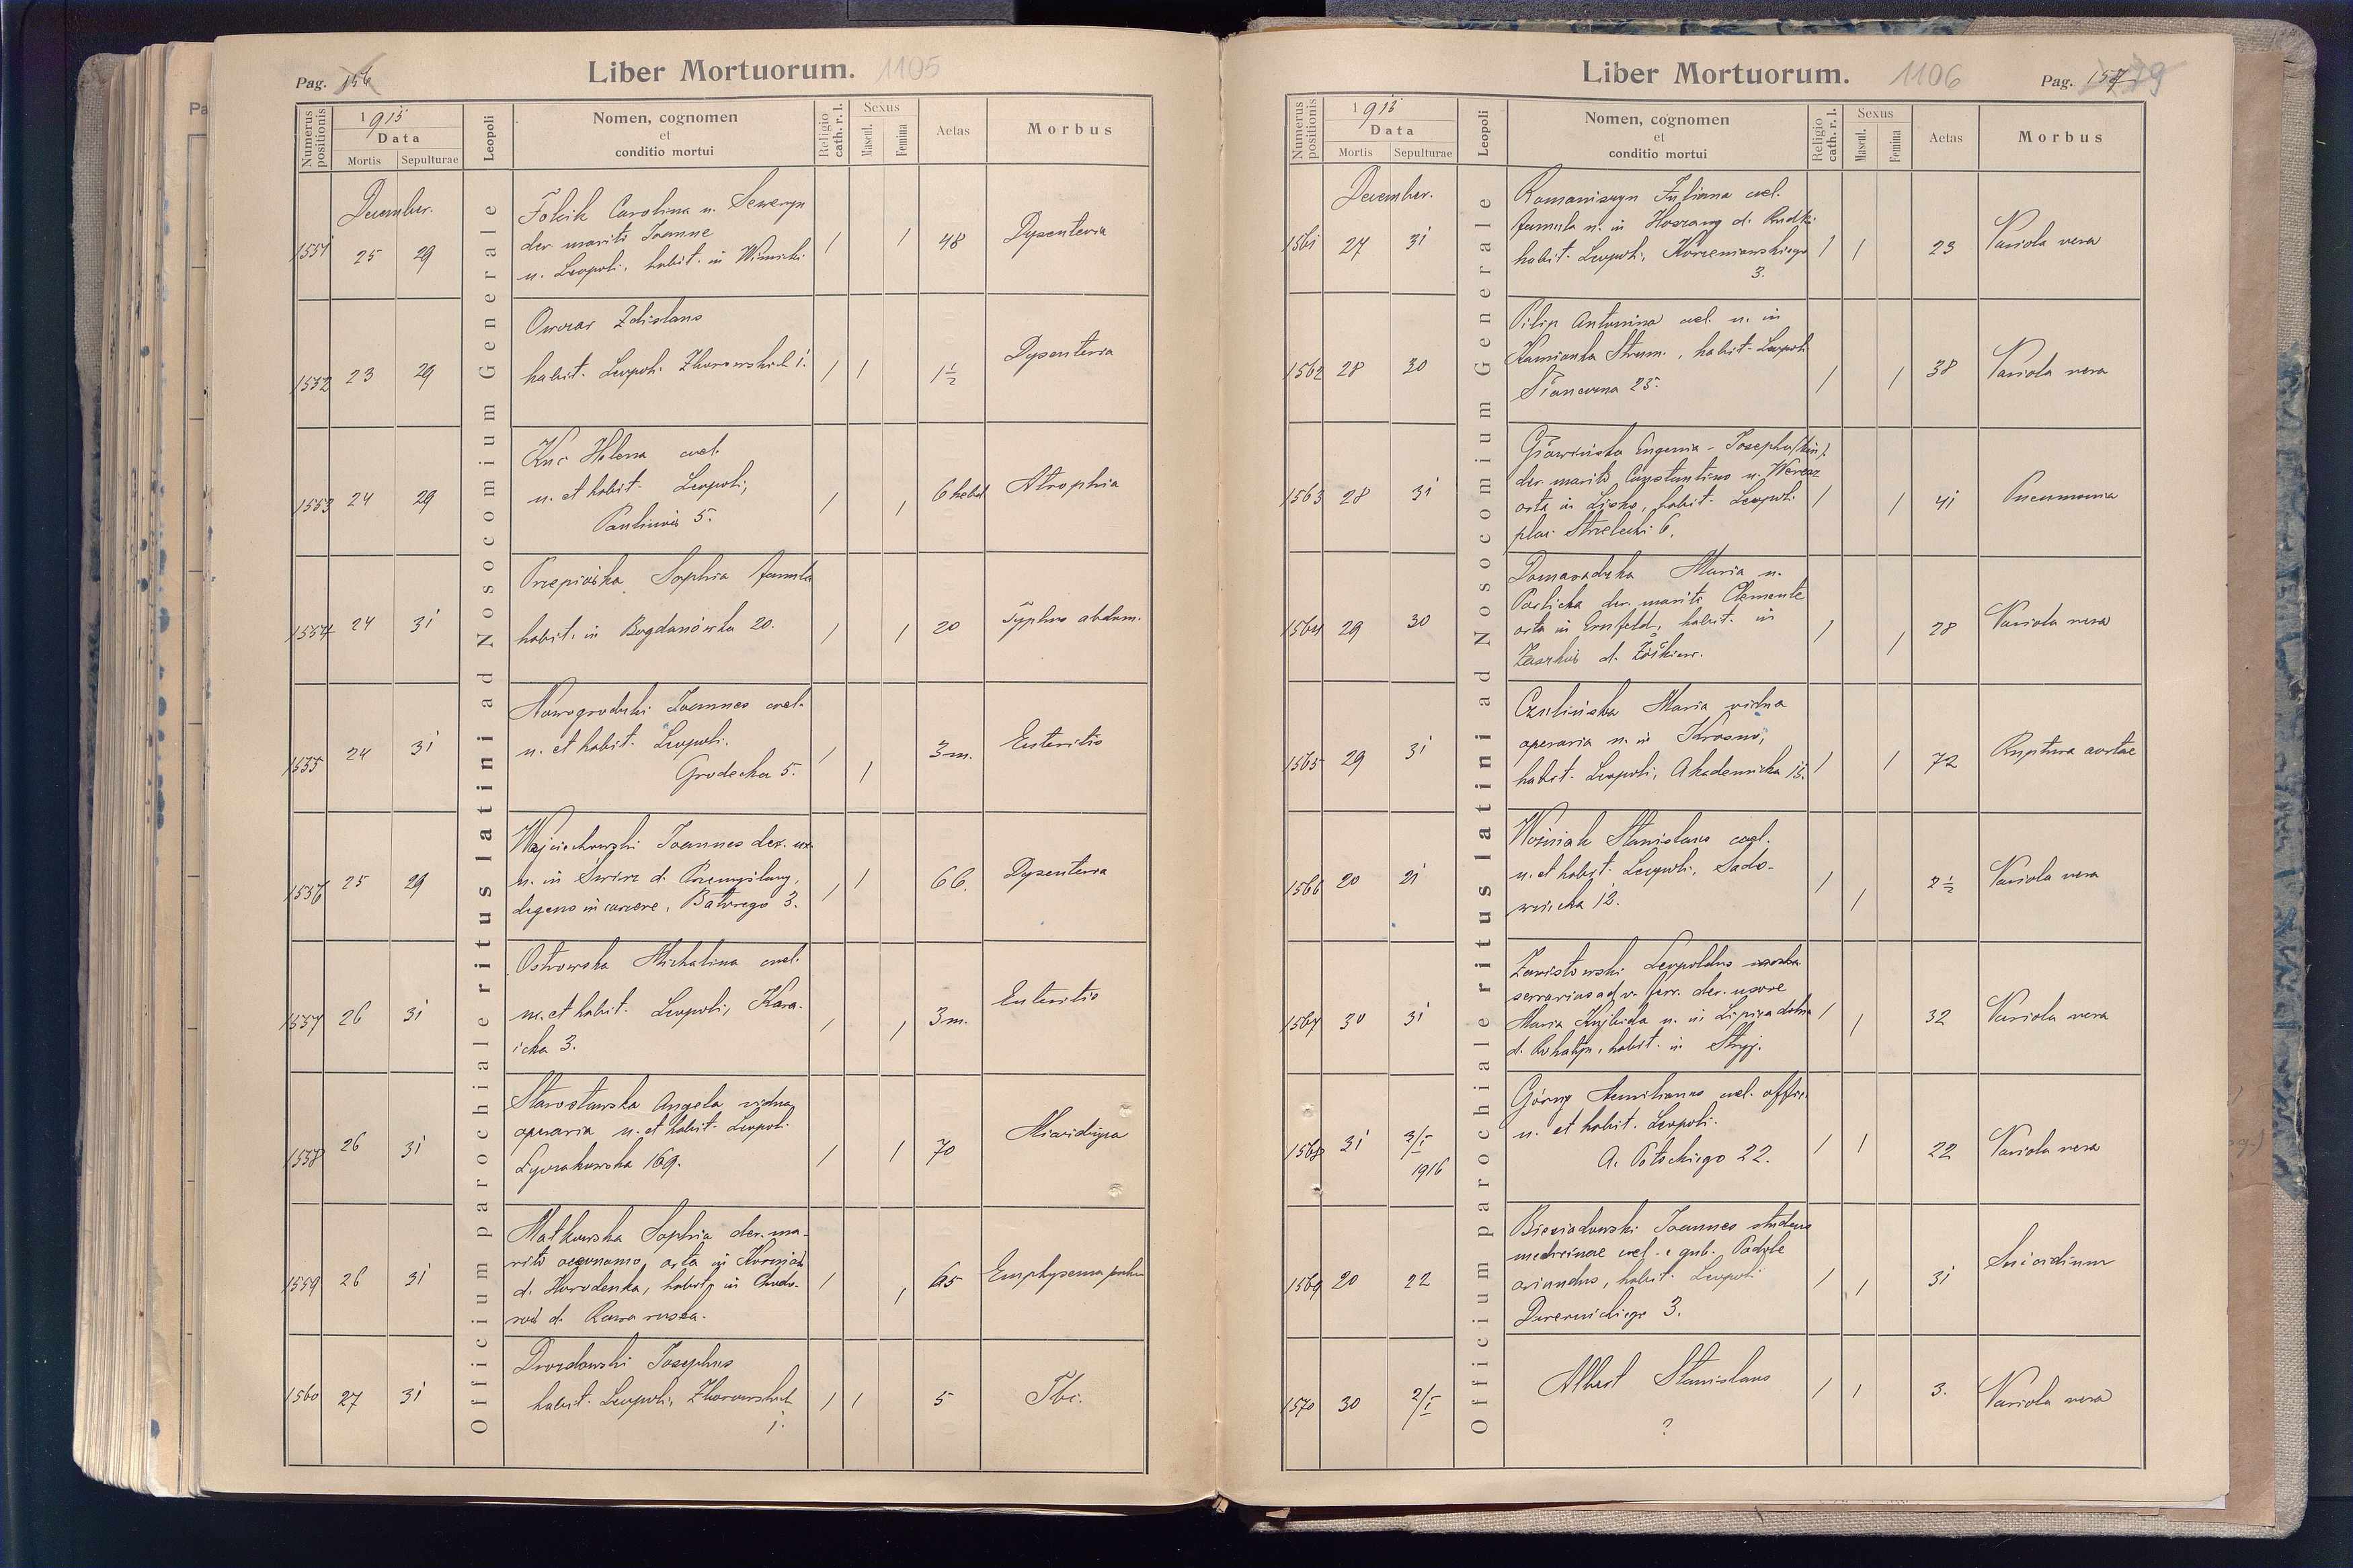 Pag. 156
Liber Mortuorum. 1105
Numerus positionis
1915
Data
Mortis Sepulturae
Leopoli
Nomen, cognomen
et
conditio mortui
Religio cath. r. l.
Sexus
Mascul. Femina
Aetas
Morbus
Officium parochiale ritus latini ad Nosocomium Generale
December.
1551 25 29
Carolina n. Seweryn
der. mariti Joanne
n. Leopoli, habit. in Winniki
/ / 48 Dysenteria
1552 23 29
Zdislaus
habit. Leopoli Zborowskich 1.
/ / 1 1/2 Dysenteria
1553 24 29
Kuc Helena cael.
n. et habit. Leopoli,
Paulinów 5.
/ / 6 hebd Atrophia
1554 24 31
Sophia famula
habit. in Bogdanówka 20.
/ / 20 Typhus abdom.
1555 24 31
Nowogrodzki Joannes cael.
n. et habit. Leopoli.
Grodecka 5.
/ / 3 m. Enteritis
1556 25 29
Wojciechowski Joannes der. ux.
n. in Świrz d. Przemyślany,
degens in carcere, Batorego 3.
/ / 66. Dysenteria
1557 26 31
Ostrowska Michalina cael.
n. et habit. Leopoli, Kara-
icka 3.
/ / 3 m. Enteritis
1558 26 31
Starosławska Angela vidua
operaria n. et habit. Leopoli
Łyczakowska 169.
/ / 70
1559 26 31
Małkowska Sophia der. ma-
rito oeconomo, orta in
d. Horodenka, habit. in
d. Rawa ruska.
/ / 65 Emphysema pulm
1560 27 31
Drozdowski Josephus
habit. Leopoli, Zborowskich
1.
/ / 5 Tbc.
Liber Mortuorum. 1106
Pag. 157 79
Numerus positionis
1915
Data
Mortis Sepulturae
Leopoli
Nomen, cognomen
et
conditio mortui
Religio cath. r. l.
Sexus
Mascul. Femina
Aetas
Morbus
Officium parochiale ritus latini ad Nosocomium Generale
December.
1561 27 31
Romaniszyn Juliana cael.
famula n. in Hoszany d. Rudki
habit. Leopoli, Korzeniowskiego
3.
/ / 23 Variola vera
1562 28 30
Pilip Antonina cael. n. in
Kamionka Strum., habit. Leopoli
25.
/ / 38 Variola vera
1563 28 31
Eugenia - Josepha
der. mariti Constantino n.
orta in Lisko, habit. Leopoli
plac Strzelecki 6.
/ / 41 Pneumonia
1564 29 30
Domaradzka Maria n.
Pawlicka der. mariti Clemente
orta in Ernsfeld, habit. in
Zaszków d. Żółkiew.
/ / 28 Variola vera
1565 29 31
Maria vidua
operaria n. in Krosno,
habit. Leopoli, Akademicka
/ / 72 Ruptura aortae
1566 20 21
Woźniak Stanislaus cael.
n. et habit. Leopoli, Sado-
wnicka 12.
/ / 2 1/2 Variola vera
1567 30 31
Zawistowski Leopoldus
serrarius ad v. ferr. der. uxore
Maria n. in Lipica dolna
d. Rohatyn, habit. in Stryj.
/ / 32 Variola vera
1568 31 3/I
1916
Górny Aemilianus cael. offic.
n. et habit. Leopoli.
A. Potockiego 22.
/ / 22 Variola vera
1569 20 22
Biesiadowski Joannes studens
medicinae cael. e gub. Podole
oriundus, habit. Leopoli
3.
/ / 31 Suicidium
1570 30 2/I
Albert Stanislaus
?
/ / 3. Variola vera